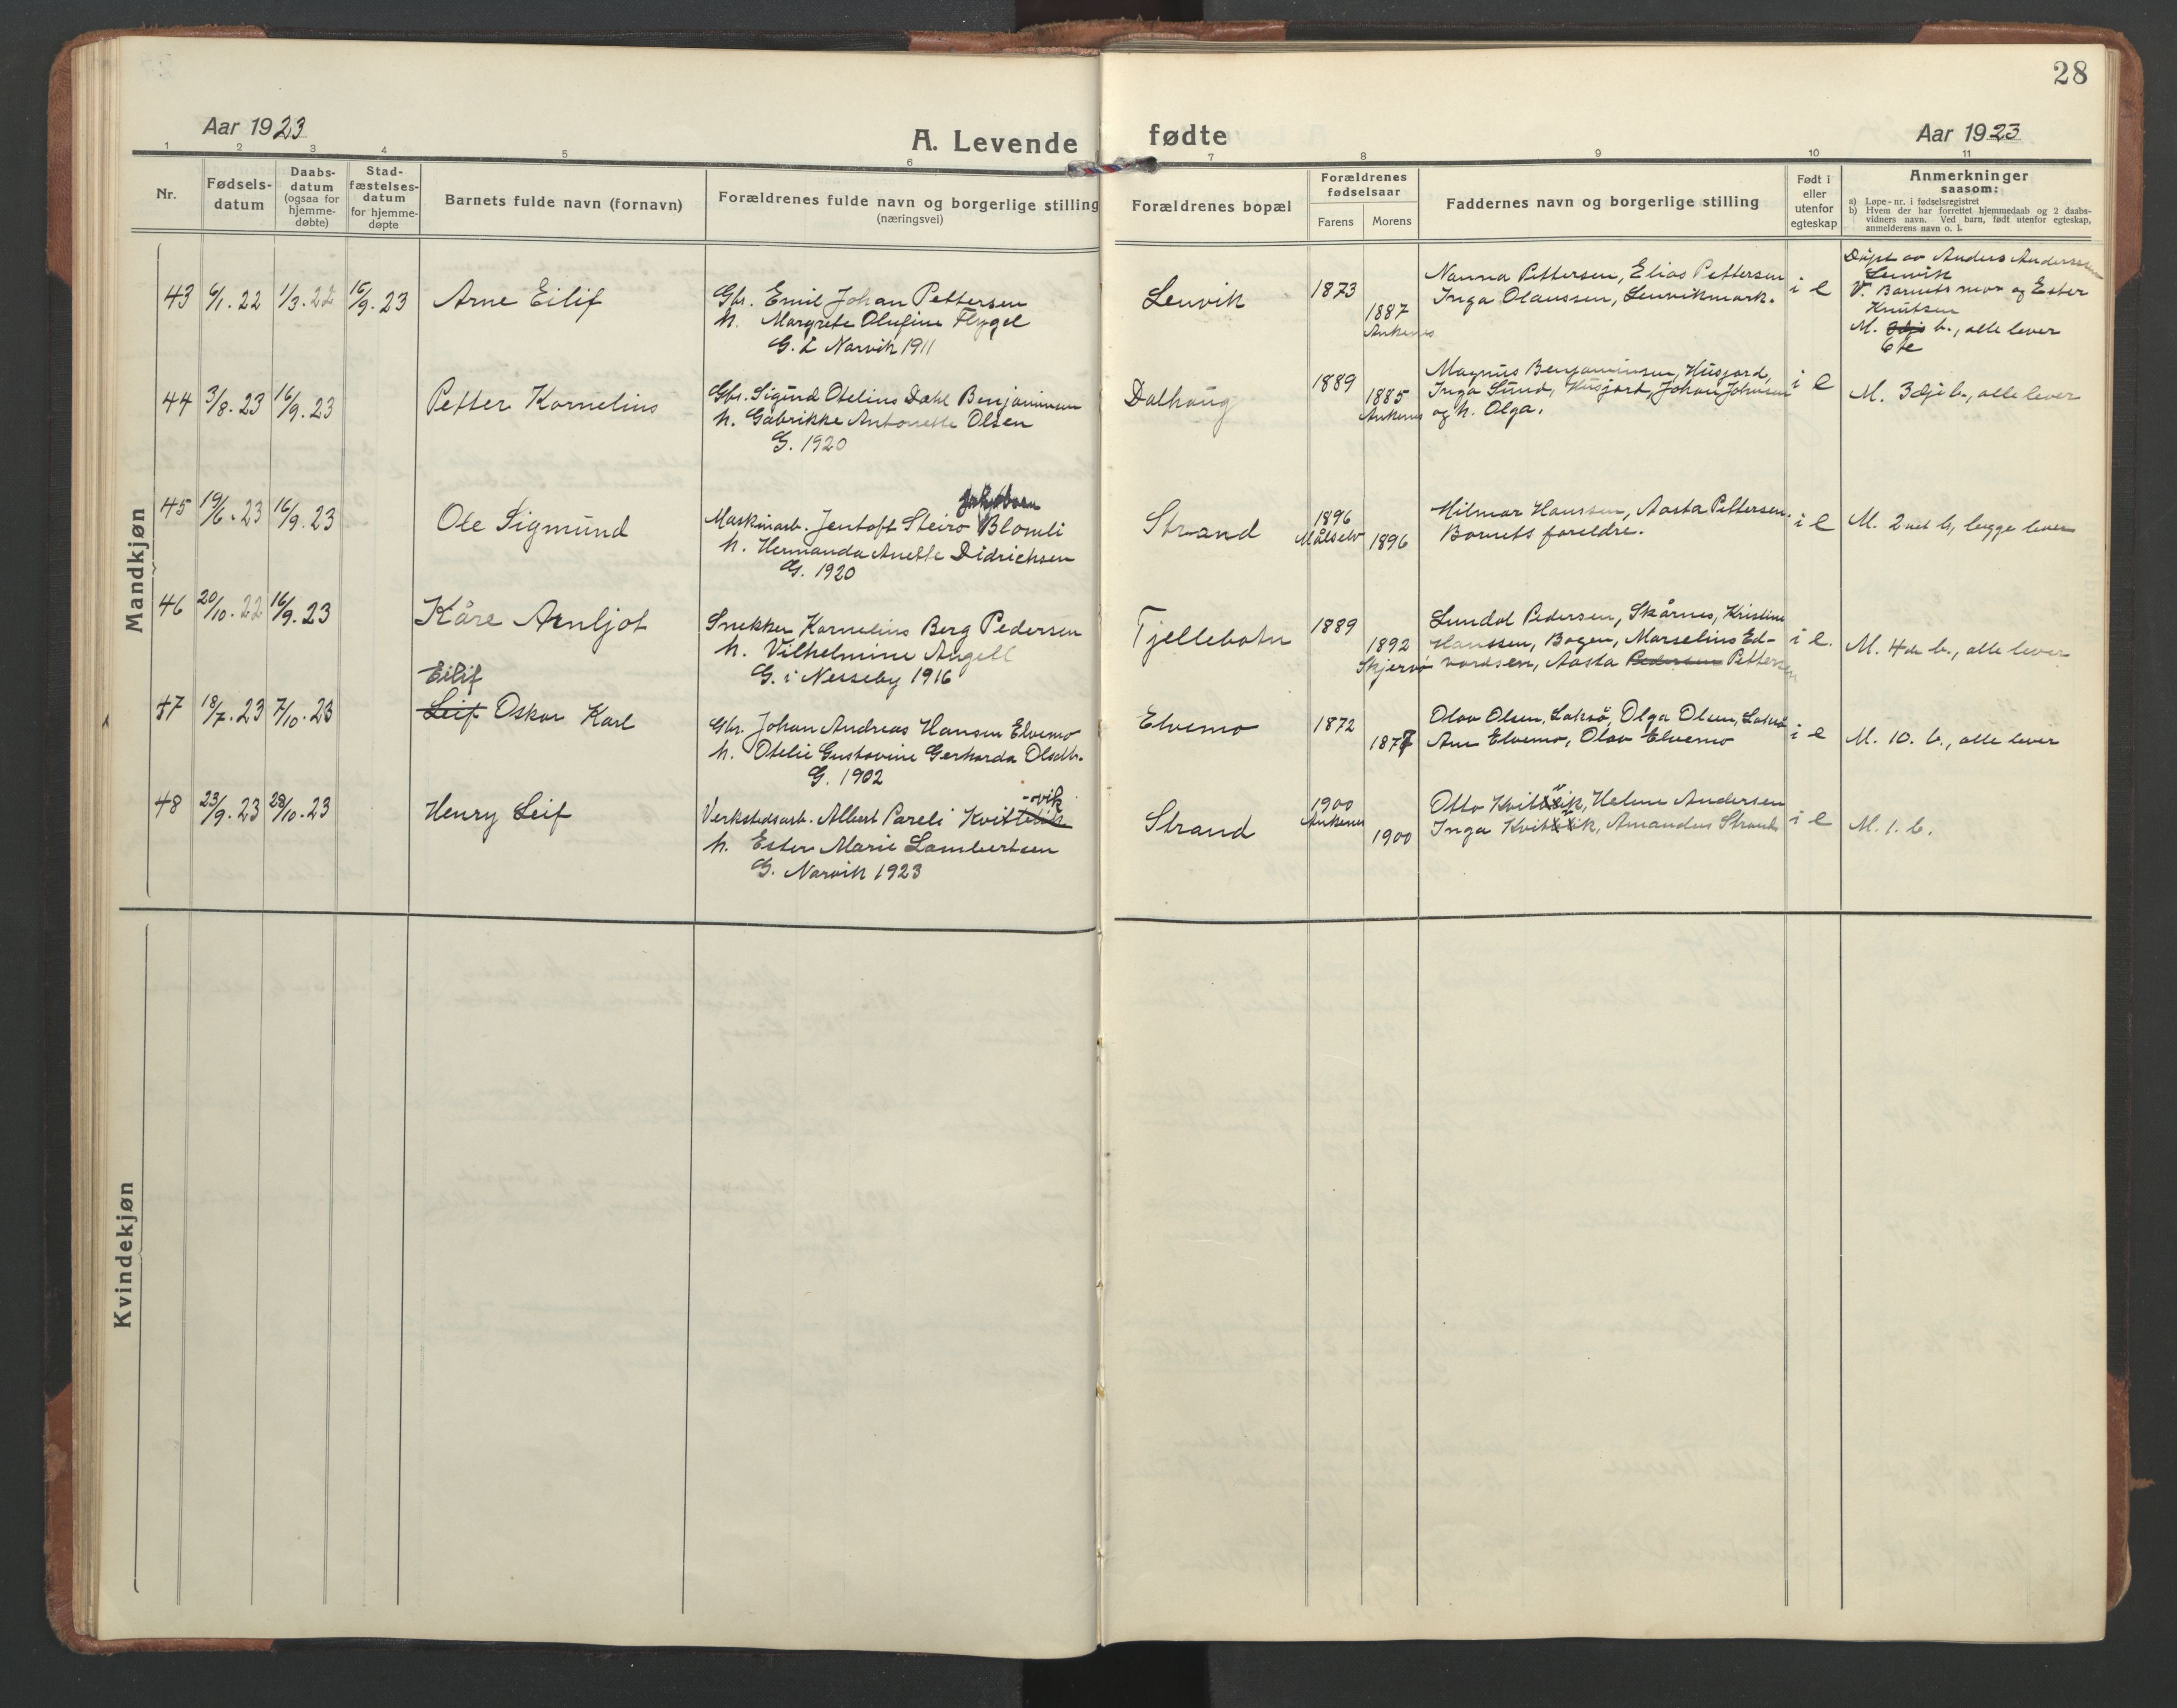 28
Aar 1923
A. Levende fødte
Aar 1923
1 2 3 4 5 6 7 8 9 10 11
Nr.
Fødsels-
datum
Daabs-
datum
(ogsaa for
hjemme-
døbte)
Stad-
fæstelses-
datum
for hjemme-
døpte
Barnets fulde navn (fornavn)
Forældrenes fulde navn og borgerlige stilling
(næringsvei)
Forældrenes bopæl
Forældrenes
fødselsaar
Farens Morens
Faddernes navn og borgerlige stilling
Født i
eller
utenfor
egteskap
Anmerkninger
saasom:
a) Løpe-nr. i fødselsregistret
b) Hvem der har forrettet hjemmedaab og 2 daabs-
vidners navn. Ved barn, født utenfor egteskap,
anmelderens navn o. l.
Mandkjøn
43 6/1. 22 1/3. 22 16/9. 23 Arne Eilif
Gbr. Emil Johan Pettersen
h. Margrete Olufine Flygel
G. i Narvik 1911
Lenvik
1873
1887
Ankenes
Nanna Pettersen, Elias Pettersen
Inga Olaussen, Lenvikmark.
i e
Døpt av Anders Anderssen
Lenvik
V. Barnets mor og Ester
Knutsen
M. b., alle lever
6te
44 3/8. 23 16/9. 23 Petter Kornelius
Gbr. Sigurd Otelius Dahl Benjaminsen
h. Gabrikke Antonette Olsen
G. 1920
Dalhaug
1889
1885
Ankenes
Magnus Benjaminsen, Husjord,
Inga Sund, Husjord, Johan Johnsen
og h. Olga.
i e
M. 3dje b., alle lever
45 19/6. 23 16/9. 23 Ole Sigmund
Jakobsen
Maskinarb. Jentoft Steiro Blomli
h. Hermanda Anette Didrichsen
G. 1920
Strand
1896
Målselv
1896
Hilmar Hanssen, Aasta Pettersen.
Barnets foreldre.
i e
M. 2net b, begge lever
46 20/10. 22 16/9. 23 Kåre Arnljot
Snekker Kornelius Berg Pedersen
h. Vilhelmine Angell
G. i Nesseby 1916
Fjellebotn
1889
1892
Skjervø
Lundal Pedersen, Skårnes, Kristine
Hanssen, Bogen, Marselius Ed-
vardsen, Aasta Pedersen Pettersen
i e.
M. 4de b., alle lever
Eilif
47 18/7. 23 7/10. 23 Leif Oskar Karl
Gbr. Johan Andreas Hansen Elvemo
h. Otelie Gustavine Gerharda Olsdtr.
G. 1902
Elvemo
1872
1877
Olav Olsen, Lakså, Olga Olsen, Lakså
Ane Elvemo, Olav Elvemo
i e
M. 10. b., alle lever
48 23/9. 23 28/10. 23 Henry Leif
-vik
Verkstedsarb. Albert Pareli Kvittvik
h. Ester Marie Lambertsen
G. Narvik 1923
Strand
1900
Ankenes
1900
Otto Kvitvik, Helene Andersen
Inga Kvitvik, Amandus Strand
i e
M. 1. b.
Kvindekjøn